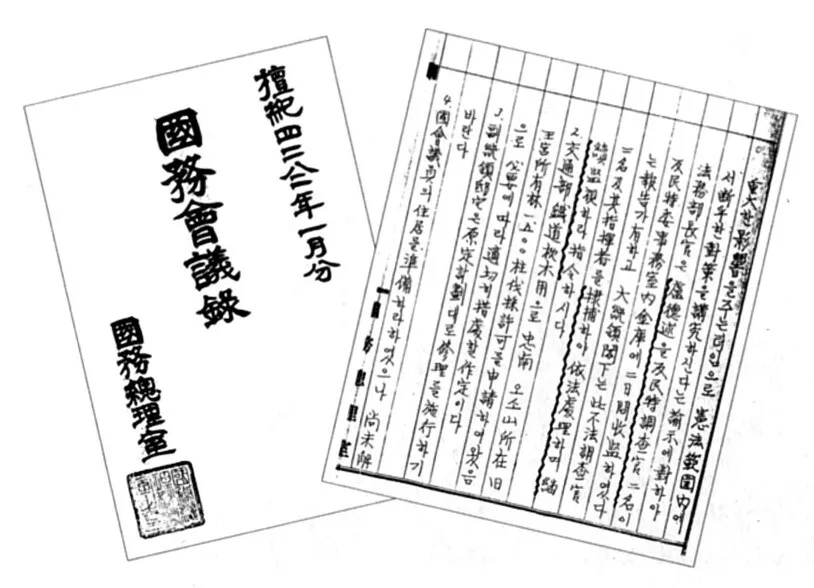 檀紀四二八二年一月分
國務會議錄
國務總理室
重大한 影響을 주는 터임으로 憲法 範圍內에
서 斷乎한 對策을 講究하신다는 諭示에 對하야
法務部長官은 盧德述을 反民特調査官 二名이
反民特委事務室內 金庫에 二日間 收監하였다
는 報告가 有하고 大統領閣下는 此 不法調査官
二名 及 其 指揮者를 逮捕하야 依法處理하며 繼
續 監視하라 指令하시다
2. 交通部 鐵道枕木用으로 忠南 오소山 所在 旧
王宮所有林 一五〇〇柱 伐採許可를 申請하여 왔음
으로 必要에 따라 適切히 措處할 作定이다
3. 副統領邸宅은 原定計劃대로 修理를 施行하기
바란다
4. 國會議員의 住居를 準備하라 하였으나 尚未解
國務總理室